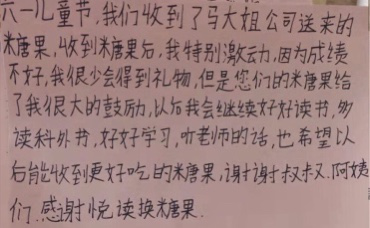 六一儿童节，我们收到了马大姐公司送来的
糖果，收到糖果后，我特别激动，因为成绩
不好，我很少会得到礼物，但是您们的糖果给
了我很大的鼓励，以后我会继续好好读书，多
读科外书，好好学习，听老师的话，也希望以
后能收到更好吃的糖果，谢谢叔叔.阿姨
们.感谢悦读换糖果.